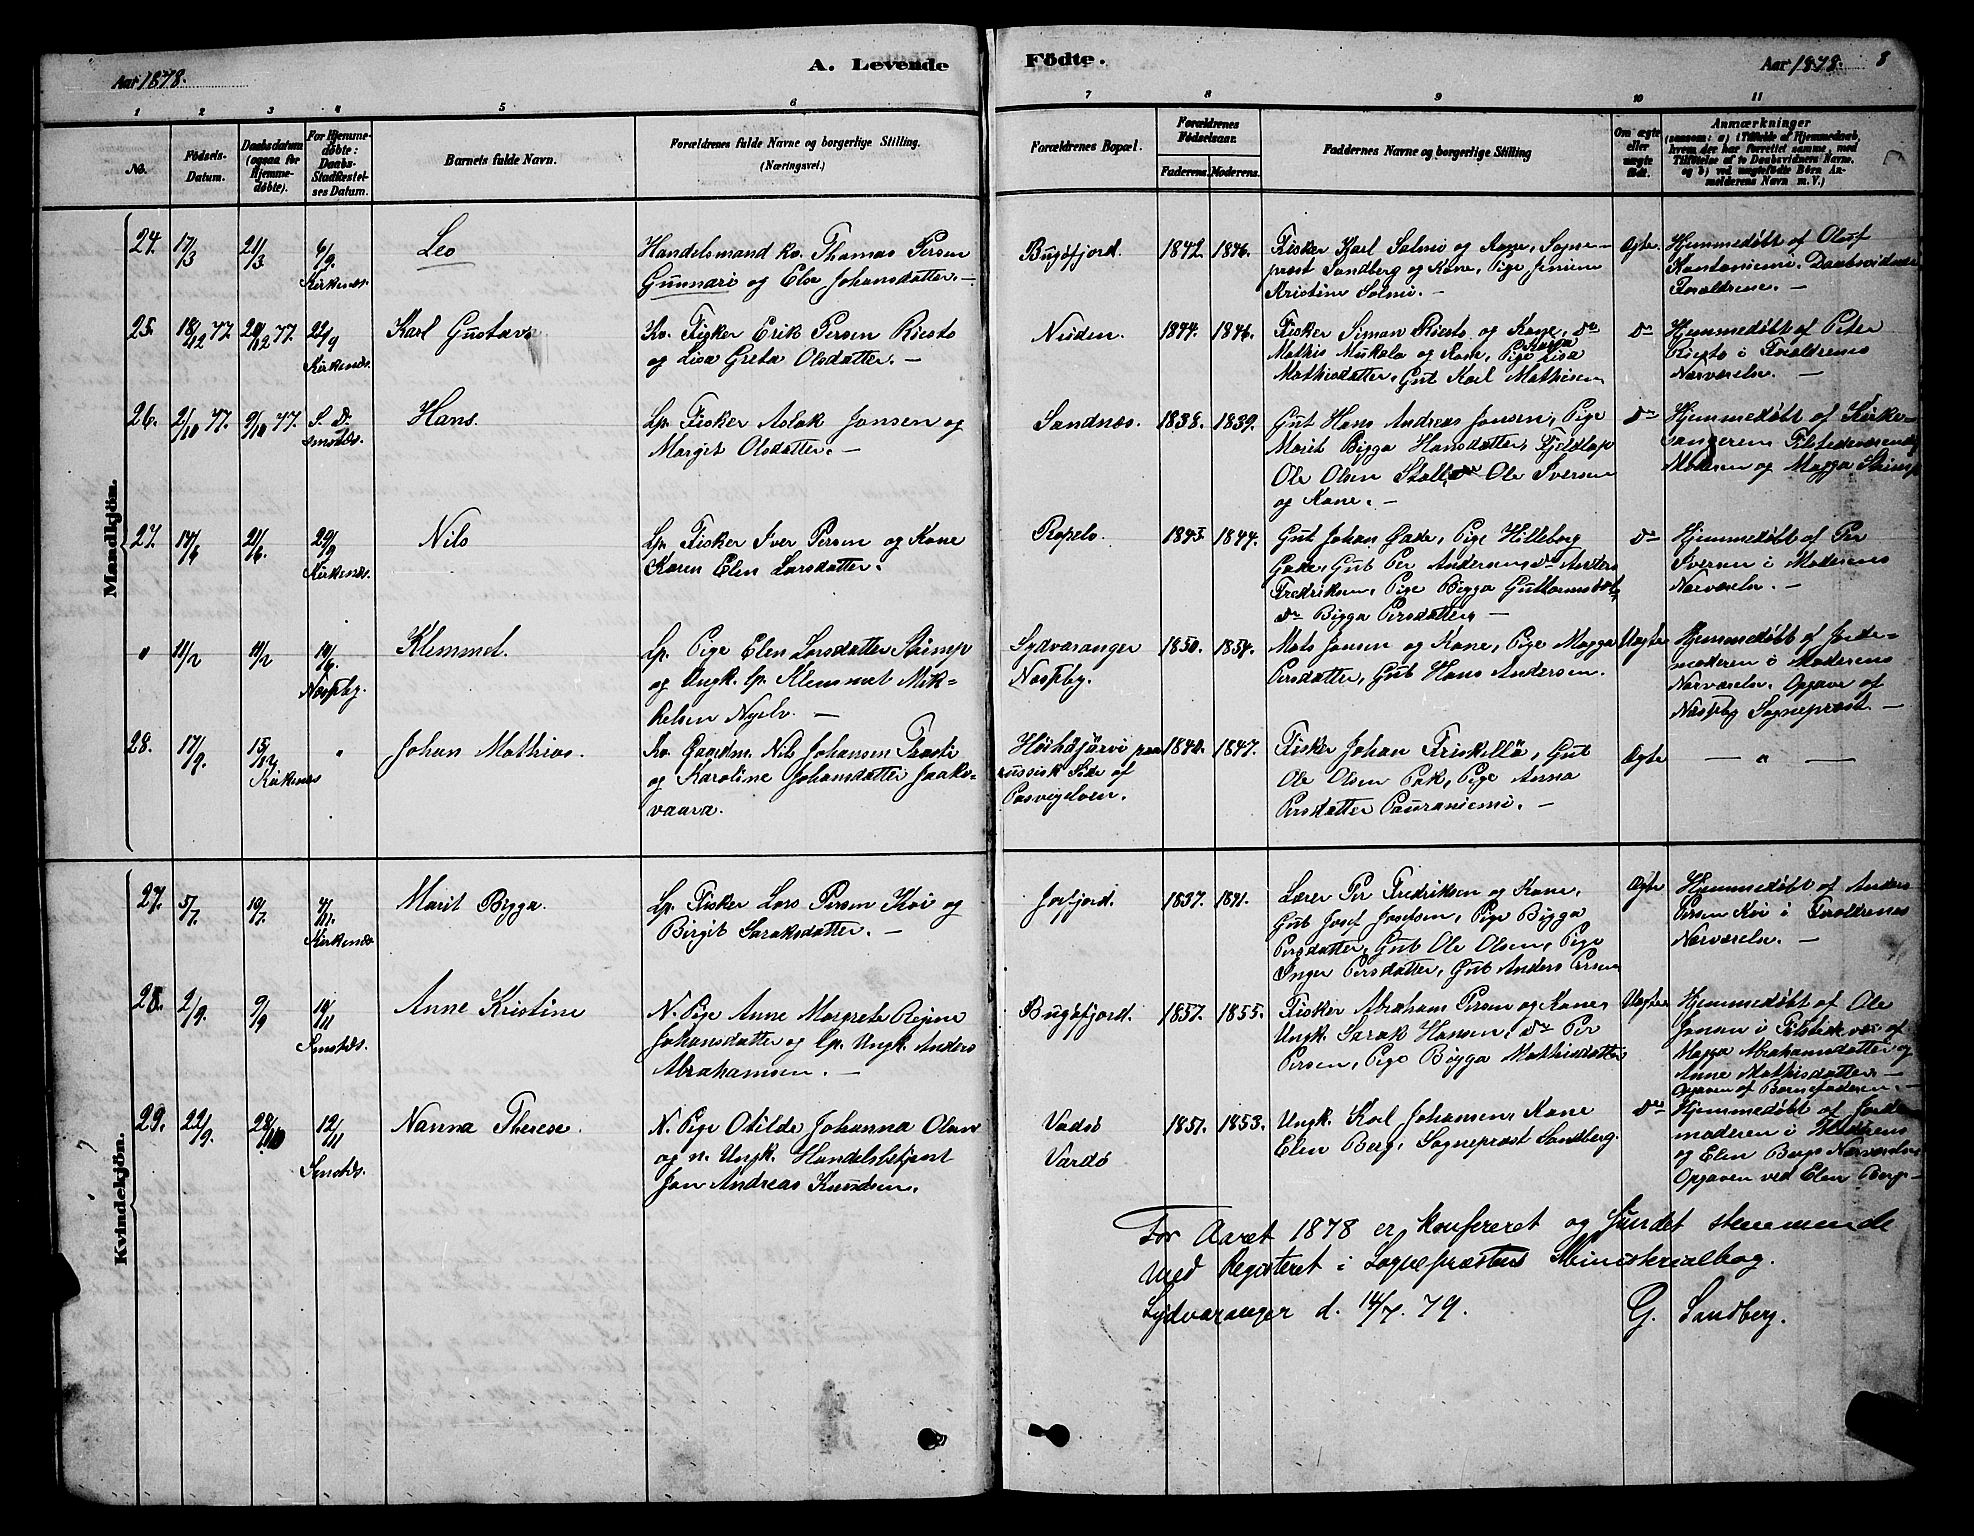 Aar 1878.
A. Levende Födte.
Aar 1878. 8
1 2 3 4 5 6 7 8 9 10 11
No.
Födsels-Datum.
Daabsdatum (ogsaa for Hjemmedøbte).
For Hjemmedøbte: Daabs-Stadfæstelses Datum.
Barnets fulde Navn.
Forældrenes fulde Navne og borgerlige Stilling. (Næringsvei.)
Forældrenes Bopæl.
Forældrenes Födselsaar.
Faderens. Moderens.
Faddernes Navne og borgerlige Stilling
Om ægte eller uægte födt.
Anmærkninger
(saasom: a) i Tilfælde af Hjemmedaab, hvem der har forrettet samme, med Tilföielse af to Daabsvidners Navne, og b) ved uægtefödte Börn Anmelderens Navn m. V.)
Mandkjön.
24. 17/3 21/3 6/9 Kirkenæs. Leo
Handelsmand kv. Thomas Persen
Gunnari og Elsa Johansdatter. —
Bugöfjord. 1842. 1846.
Fisker Karl Salmi og Kone, Sogne-
præst Sandberg og Kone, Pige Jenine
Kristine Salmi. —
Ægte.
Hjemmedöbt af Oluf
Kontaniemi. Daabsvidner
Forældrene. —
25. 18/12 77. 20/12 77. 22/9 Kirkenæs. Karl Gustav
Kv. Fisker Erik Persen Riesto
og Lisa Greta Olsdatter. —
Neiden. 1844. 1846.
Fisker Simon Riesto og Kone, do
Mathis Mukala og Kone, Pige Kajsa Lisa
Mathisdatter, Gut Karl Mathisen
do
Hjemmedöbt af Peter
Riesto i Forældrenes
Nærværelse. —
26. 2/10 77. 9/10 77. S. D. Hans.
Lp. Fisker Aslak Jonsen og
Margit Olsdatter. —
Sandnæs. 1838. 1839.
Gut Hans Andreas Jonsen, Pige
Marit Bigga Hansdatter, Fjeldlap
Ole Olsen Stall, do Ole Iversen
og Kone. —
do
Hjemmedöbt af Kirke-
sangeren Tilstedeværende
Moderen og Magga Skimp
27. 14/6 21/6. 29/9 Kirkenæs. Nils
Lp. Fisker Iver Persen og Kone
Karen Elen Larsdatter.
Ropelv. 1843. 1844.
Gut Johan Gade, Pige Hilleborg
Gade, Gut Per Andersen, do Anders
Fredriksen, Pige Bigga Guttormsdat,
do Bigga Persdatter. —
do
Hjemmedöbt af Per
Iversen i Moderens
Nærværelse. —
" 11/2 14/2 14/6. Næsseby. Klemmet.
Lp. Pige Elen Larsdatter Skimp
og Ungk. lp. Klemmet Mik-
kelsen Nyelv. —
Sydvaranger
Næsseby. 1850. 1854.
Mats Jonsen og Kone, Pige Magga
Persdatter, Gut Hans Andersen.
Uægte
Hjemmedöbt af Jorde-
moderen i Moderens
Nærværelse. Opgave af
Næsseby Sognepræst. —
28. 17/9. 15/12 Kirkenæs " Johan Mathias.
Kv. Gaardm. Nils Johansen Trasti
og Karoline Johansdatter Jaako-
vaara.
Höihdjärvi paa
russisk Side af
Pasvigelven. 1840. 1847.
Fisker Johan Friskillä, Gut
Ole Olsen Pak, Pige Anna
Persdatter Pauraniemi. —
Ægte
— " —
Kvindekjön.
27. 5/7. 19/7. Kirkenæs Marit Bigga.
Lp. Fisker Lars Persen Koi og
Birgit Saraksdatter. —
Jarfjord. 1837. 1841.
Lærer Per Fredriksen og Kone,
Gut Josef Josefsen, Pige Bigga
Persdatter, Gut Ole Olsen, Pige
Inger Persdatter, Gut Anders Persen
Ægte
Hjemmedöbt af Anders
Persen Koi i Forældrenes
Nærværelse. —
28. 2/9. 9/9 10/11 Anne Kristine
N. Pige Anne Margrete Regine
Johansdatter og lp. Ungk. Anders
Abrahamsen. —
Bugöfjord. 1857. 1855.
Fisker Abraham Persen og Kone,
Ungk. Sarak Hansen, do Per
Persen, Pige Bigga Mathisdatter
Uægte
Hjemmedöbt af Ole
Jonsen i Tilstedevær. af
Magga Abrahamsdatter og
Anne Mathisdatter. —
Opgaven af Barnefaderen. —
29. 22/9. 28/10 12/11 Nanna Therese.
N. Pige Otilde Johanna Olsen
og n. Ungk. Handelsbetjent
Jon Andreas Knudsen.
Vadsö
Vardö 1851. 1853.
Ungk. Karl Johansen, Kone
Elen Berg, Sognepræst Sandberg.
do
Hjemmedöbt af Jorde-
moderen i Moderens
og Elen Bergs Nærværelse
Opgaven ved Elen Berg. —
For Aaret 1878 er konfereret og fundet stemmende
med Registeret i Sognepræstens Ministerialbog.
Sydvaranger d. 14/7. 79. G. Sandberg.